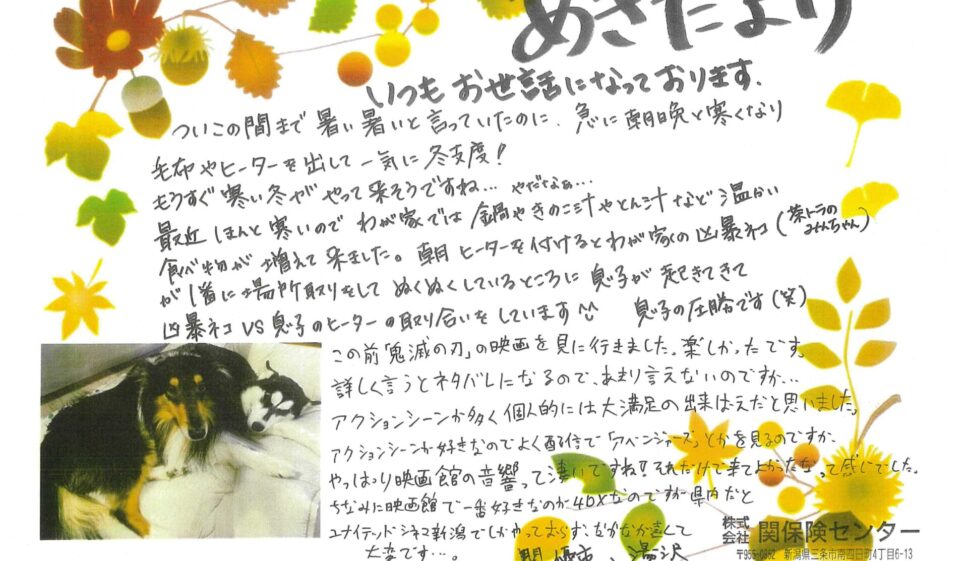 あきだより
いつもお世話になっております.
ついこの間まで暑い暑いと言っていたのに、急に朝晩と寒くなり
毛布やヒーターを出して一気に冬支度!
もうすぐ寒い冬がやって来そうですね… やだなぁ…
最近ほんと寒いのでわが家では鍋やきのこ汁やとん汁など温かい
食べ物が増えて来ました。朝ヒーターを付けるとわが家の凶暴ネコ(茶トラのみんちゃん)
が1番に場所取りをしてぬくぬくしているところに息子が起きてきて
凶暴ネコVS息子のヒーターの取り合いをしています 息子の圧勝です(笑)
この前「鬼滅の刃」の映画を見に行きました。楽しかったです。
詳しく言うとネタバレになるので、あまり言えないのですが…
アクションシーンが多く個人的には大満足の出来ばえだと思いました。
アクションシーンが好きなのでよく配信で「アベンジャーズ」とかを見るのですが、
やっぱり映画館の音響って凄いですね!!それだけで来てよかったなって感じでした。
ちなみに映画館で一番好きなのが4DXなのですが県内だと
ユナイテッドシネマ新潟でしかやっておらず、なかなか遠くて
大変です…。
湯沢
株式会社 関保険センター
新潟県三条市南四日町4丁目6-13